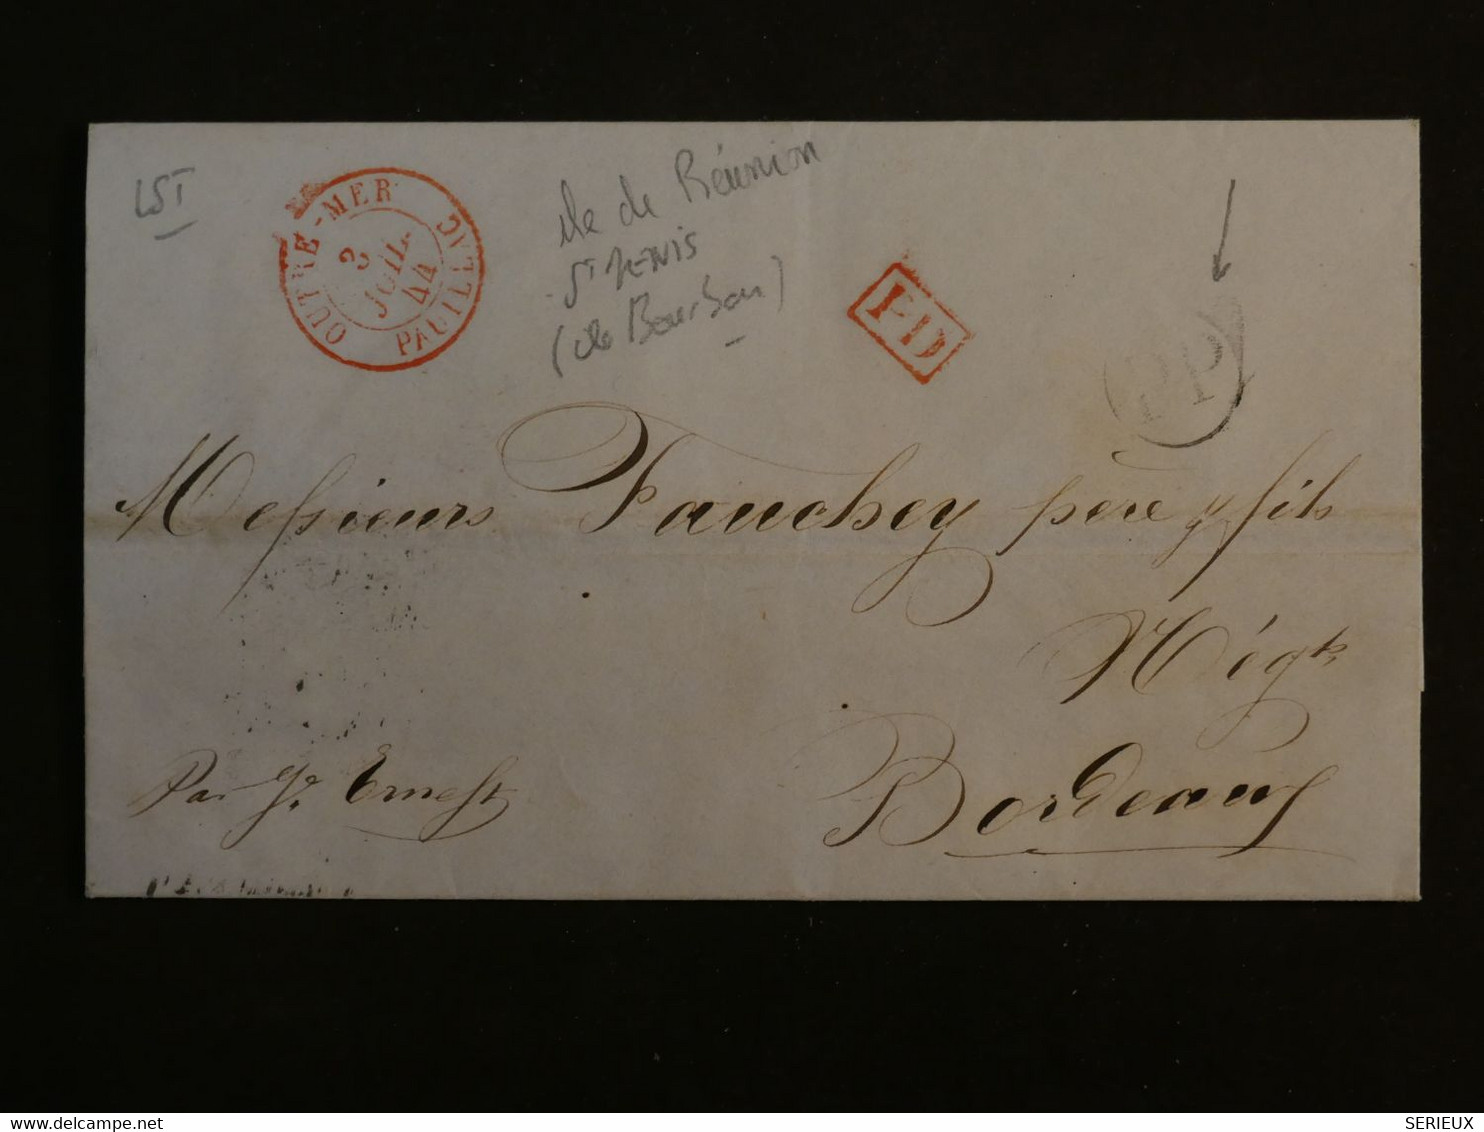 LST
OUTRE-MER
2
JUIL.
44
PAUILLAC
ile de Réunion
St DENIS
(ile Bourbon)
PD
PP
Messieurs Fauchey père & fils
Négts
Bordeaux
Par Ernest
SERIEUX
www.delcampe.net